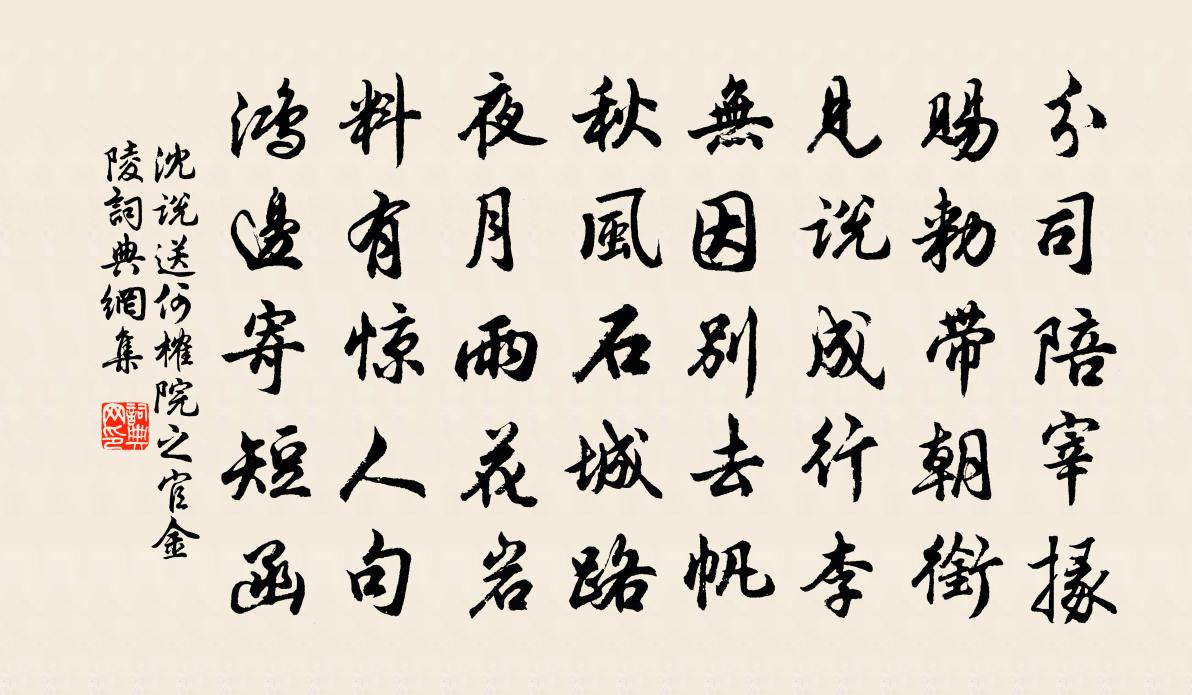 分司陪宰掾
賜勅带朝銜
見説成行李
無因別去帆
秋風石城路
夜月雨花岩
料有惊人句
鴻邊寄短函
沈説送何榷院之官金
陵詞典網集
詞典
网印